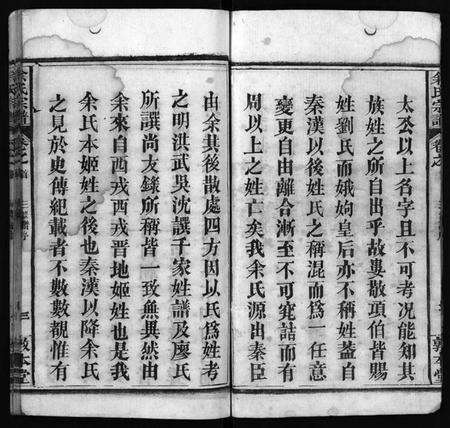 余氏宗譜
卷之
敦本堂
太公以上名字且不可考况能知其
族姓之所自出乎故婁敬項伯皆賜
姓劉氏而娥姁皇后亦不稱姓蓋自
秦漢以後姓氏之稱混而爲一任意
變更自由離合漸至不可究詰而有
周以上之姓亡矣我余氏源出秦臣
由余其後散處四方因以氏爲姓考
之明洪武吳沈譔千家姓譜及廖氏
所譔尚友錄所稱皆一致無異然由
余來自西戎西戎晋地姬姓也是我
余氏本姬姓之後也秦漢以降余氏
之見於史傳紀載者不數數覯惟有
余氏宗譜
卷之首
三
敦本堂